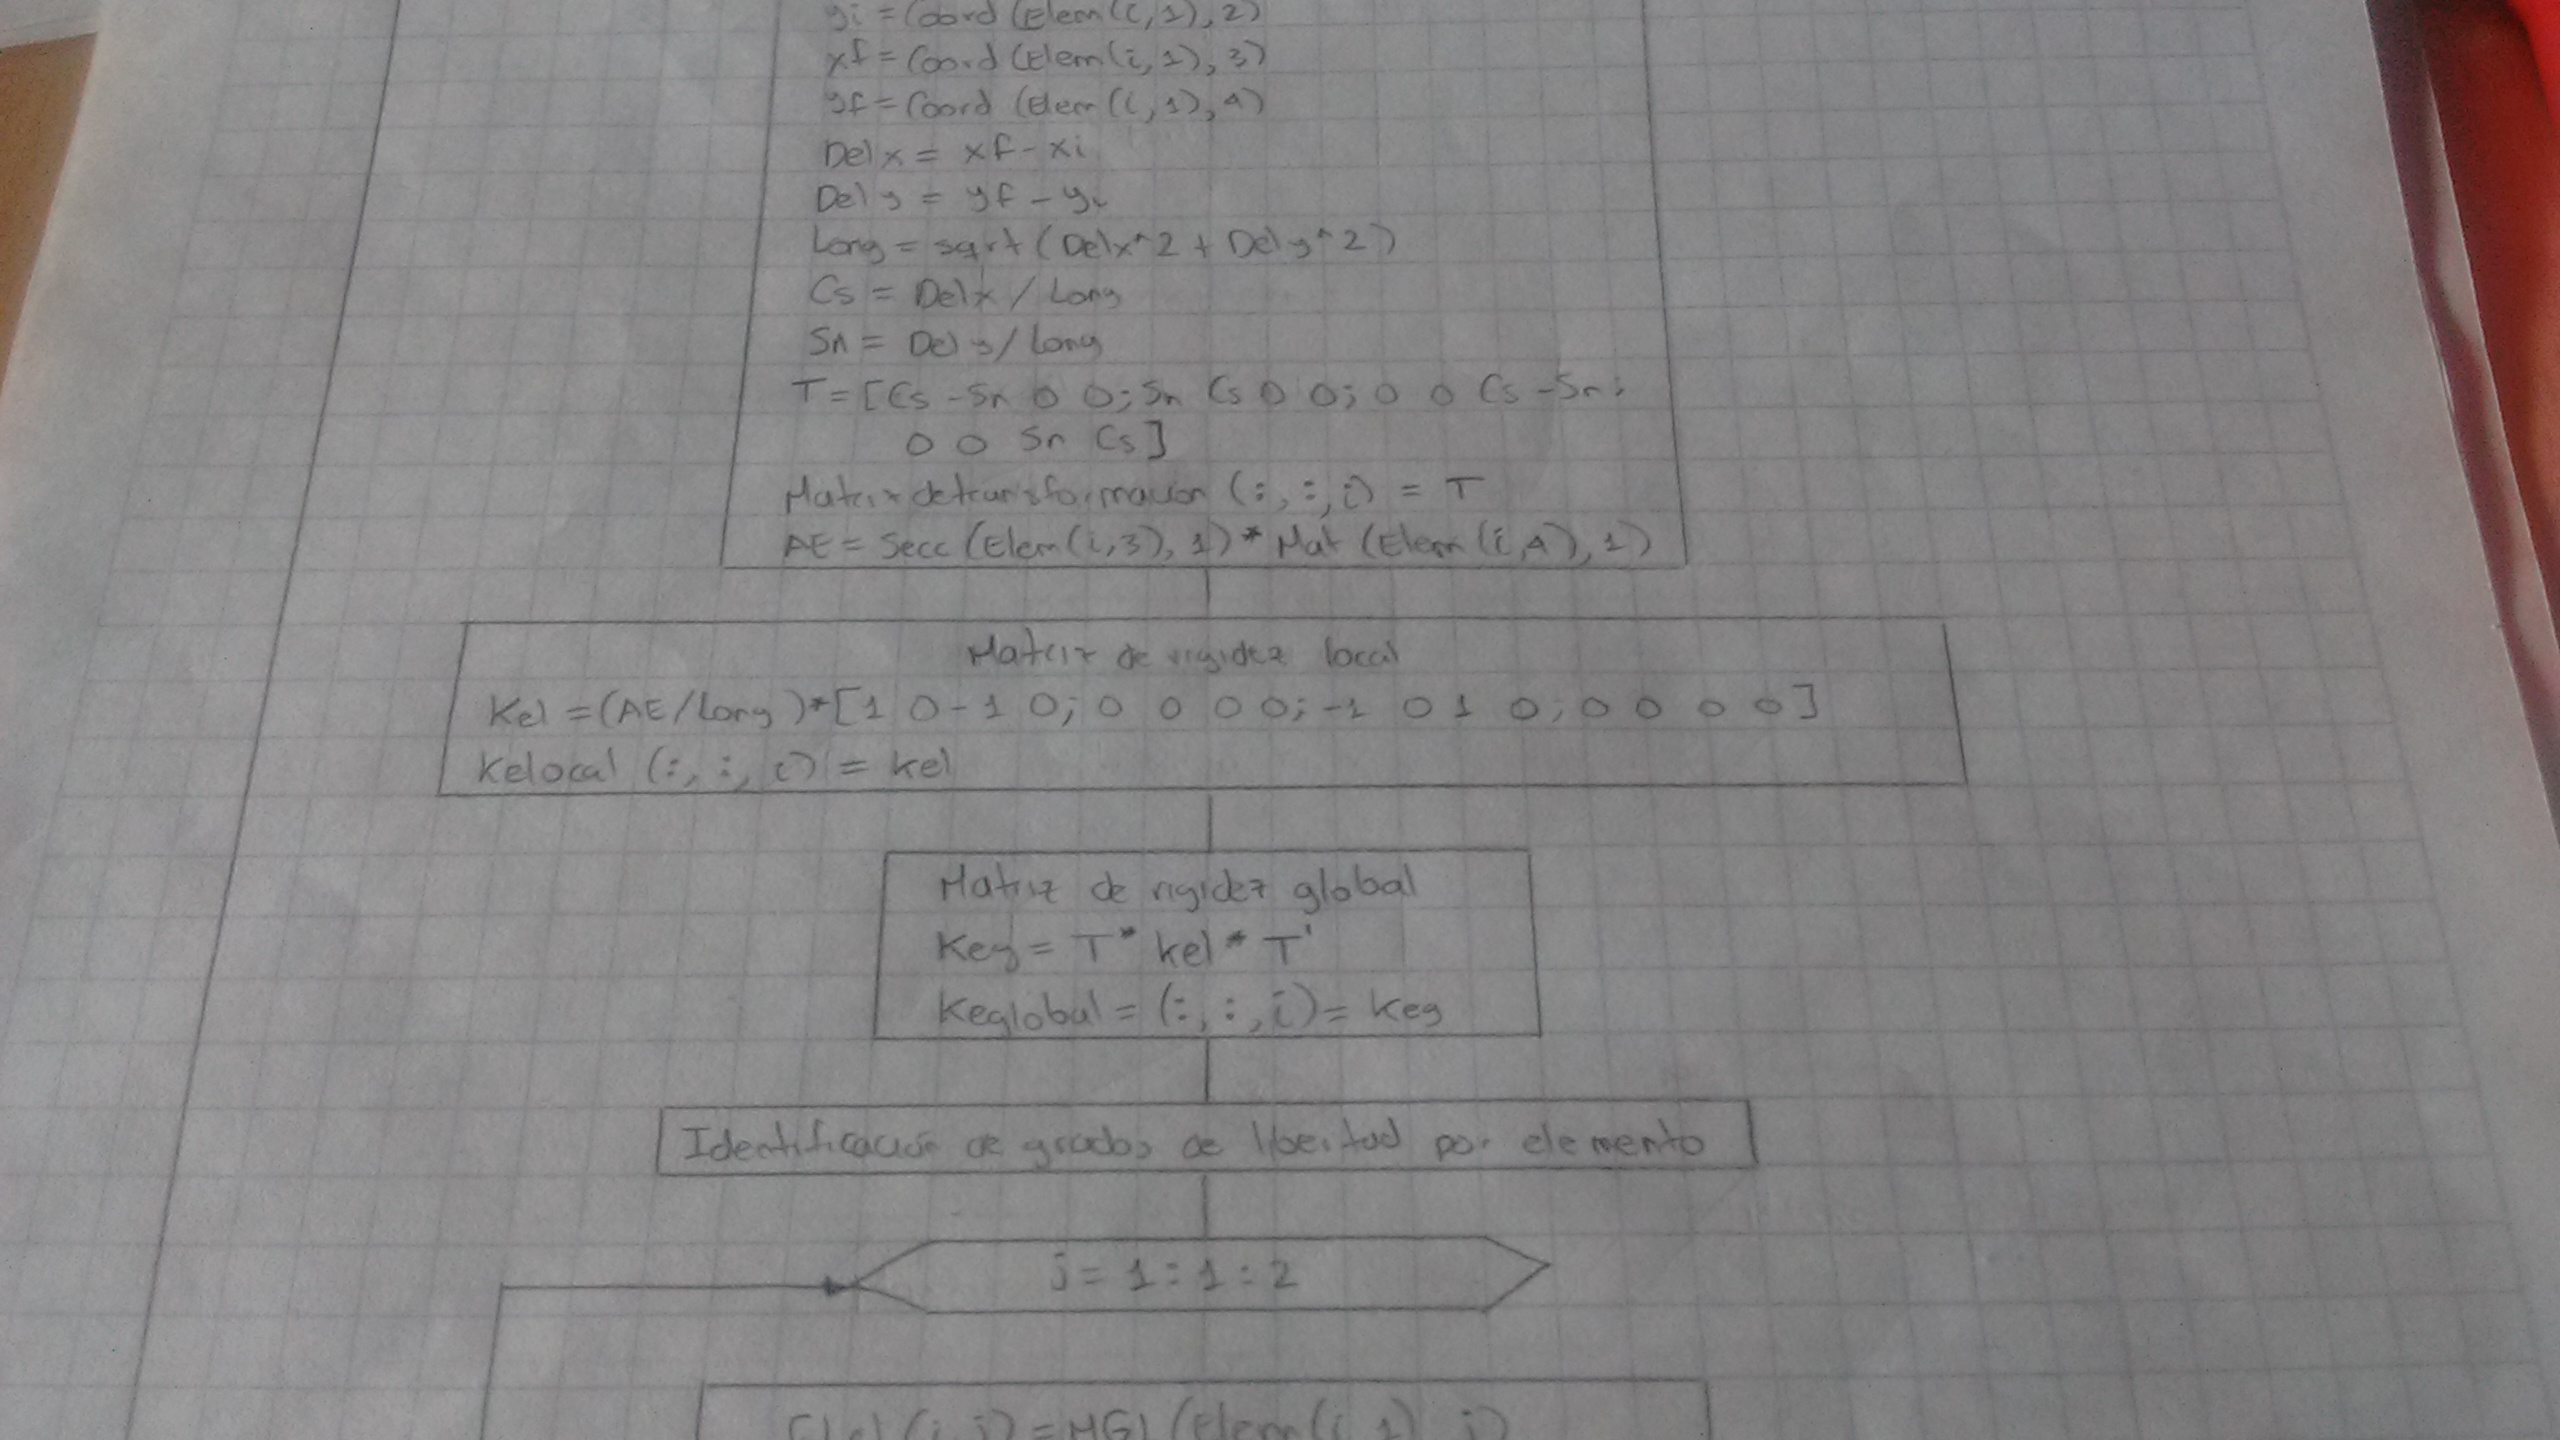 yi = Coord (Elem(i,1),2)
xf = Coord (Elem(i,1),3)
yf = Coord (Elem(i,1),4)
Delx = xf - xi
Dely = yf - yi
Long = sqrt (Delx^2 + Dely^2)
Cs = Delx / Long
Sn = Dely / Long
T = [Cs -Sn 0 0; Sn Cs 0 0; 0 0 Cs -Sn;
0 0 Sn Cs]
Matrizdetransformacion (:,:,i) = T
AE = Secc (Elem(i,3),1) * Mat (Elem(i,4),1)
Matriz de rigidez local
Kel = (AE/Long)*[1 0 -1 0; 0 0 0 0; -1 0 1 0; 0 0 0 0]
Kelocal (:,:,i) = kel
Matriz de rigidez global
Keg = T * kel * T'
Keglobal = (:,:,i) = Keg
Identificación de grados de libertad por elemento
j = 1:1:2
(i,j) = MGl (Elem(i,1),j)